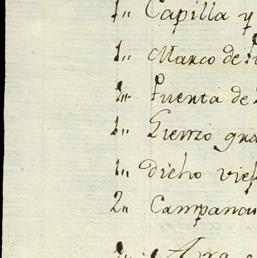 1,, Capilla y
1,, Marco de
1,, Puerta de
1,, Lienzo gra
1,, dicho viej
2,, Campana
2,, Ara